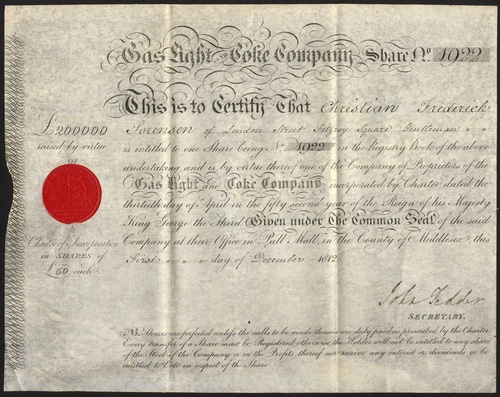 Gas Light and Coke Company Share No. 1922
This is to Certify That Christian Frederick
Sorensen of London Street Fitzroy Square Gentleman " "
is intitled to one Share being No. 1922 in the Registry Book of the above
undertaking and is by virtue thereof one of the Company of Proprietors of the
Gas Light and Coke Company incorporated by Charter dated the
thirtieth day of April in the fifty second year of the Reign of his Majesty
King George the Third Given under the Common Seal of the said
Company at their Office in Pall Mall, in the County of Middlesex, this
First " " " day of December 1812
£200000
raised by virtue
of
Charter of Incorporation
in SHARES of
£50 each
John Pedder
SECRETARY.
NB. Shares are forfeited unless the calls to be made thereon are duly paid as prescribed by the Charter
Every transfer of a Share must be Registered otherwise the Holder will not be intitled to any share
of the Stock of the Company or in the Profits thereof nor receive any interest or dividends or be
intitled to Vote in respect of the Share